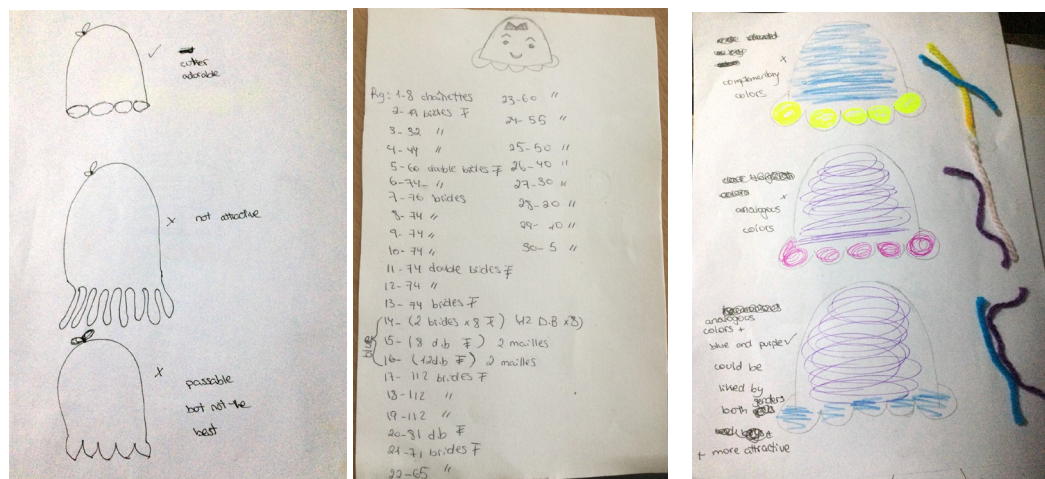 cuter
adorable
not attractive
passable
bot not the
best
Rg: 1-8 chaînettes
2- 19 brides F
3- 32 〃
4- 44 〃
5- 60 double brides F
6- 74- 〃
7- 76 brides
8- 74 〃
9- 74 〃
10- 74 〃
11- 74 double brides F
12- 74 〃
13- 74 brides F
14- (2 brides x 8 F) (42 D.B x 8)
15- (8 d.b F) 2 mailles
16- (12 d.b F) 2 mailles
blue
17- 112 brides F
18- 112 〃
19- 112 〃
20- 81 db F
21- 71 brides F
22- 65 〃
23-60 〃
24- 55 〃
25- 50 〃
26- 40 〃
27-30 〃
28-20 〃
29- 10 〃
30-5 〃
complementary
colors
analogous
colors
analogous
colors +
blue and purple
could be
liked by
both genders
+ more attractive